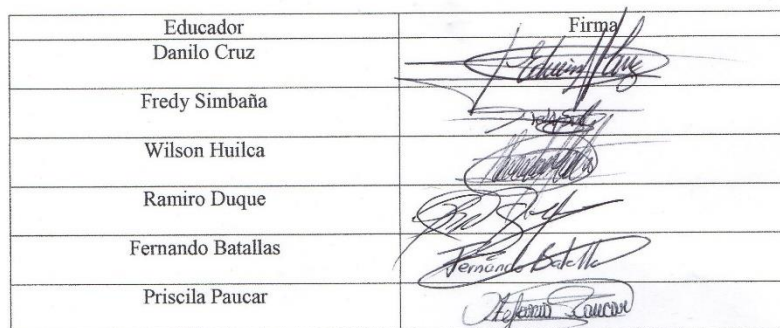 Educador Firma
Danilo Cruz Edwin Cruz
Fredy Simbaña
Wilson Huilca
Ramiro Duque
Fernando Batallas Fernando Batalla
Priscila Paucar Stefania Paucar